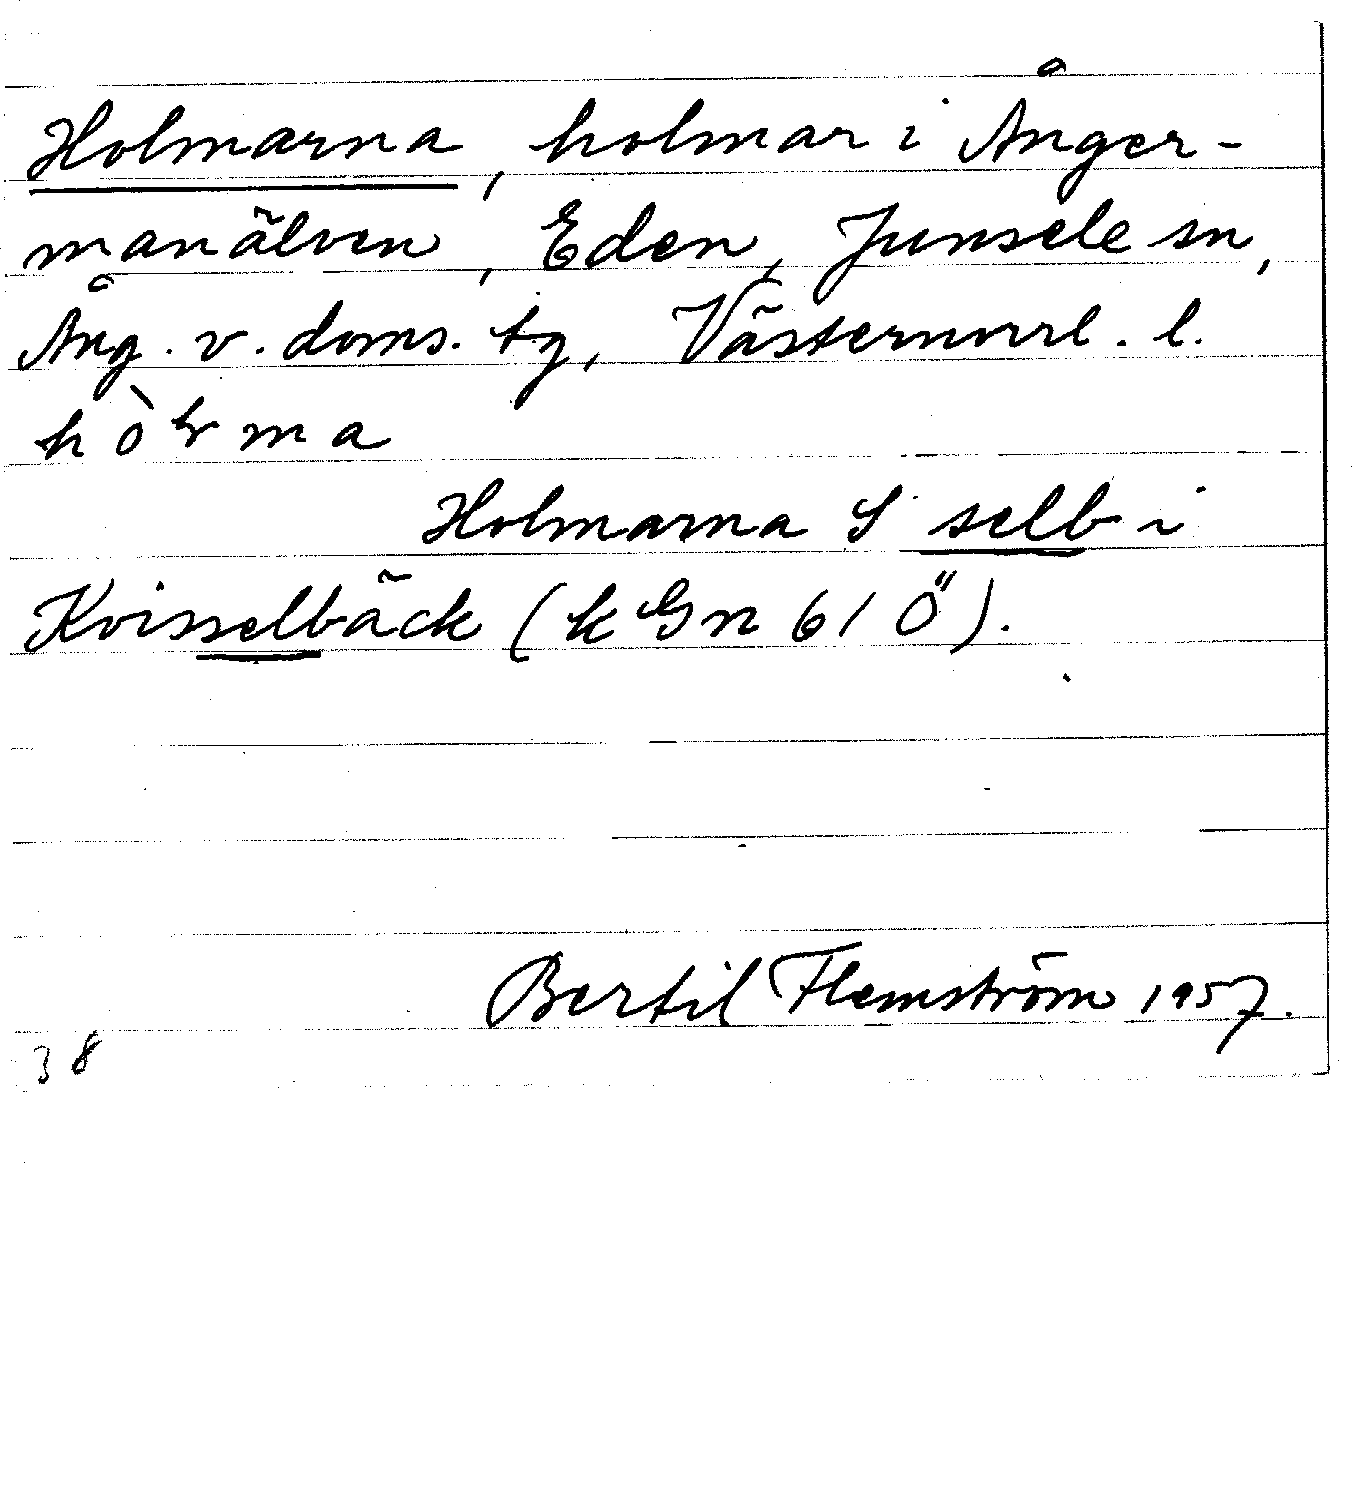 Holmarna, holmar i Ånger-
manälven, Eden, Junsele sn,
Ång. v. doms. tg, Västernorrl. l.
Holmarna S selb i
Kvisselbäck (k Gn 61 Ö).
Bertil Flemström 1957.
38